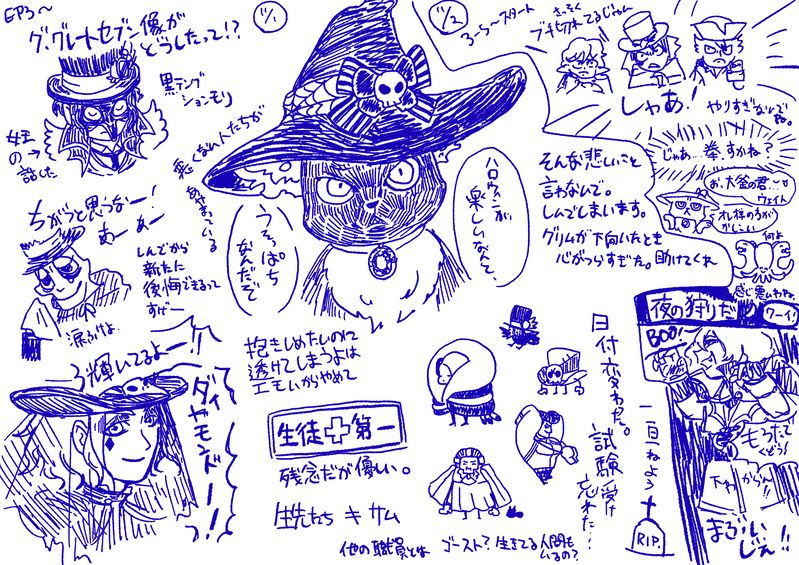 EP3〜
グ、グレートセブン像が
どうしたって!?
黒テング
ションモリ
女王
の→
話した
ちがうと思うなー!
あーあー
しんでから
新たな
後悔できるって
すげー
涙ふけよ
輝いてるよー!!
ダイヤモンドー!!
11/1
11/2
3-5〜スタート
さっそく
ブキ切れてるじゃん
しゃあ!
やりすぎなんで
じゃあ…拳、すかね?
お、大釜の君…
ウェイト
何よ
ハロウィンが
楽しいなんて、
うそっぱち
なんだぞ
そんな悲しいこと
言わないで。
しんでしまいます。
グリムが下向いたとき
心がつらすぎた。助けてくれ
夜の狩りだ
ワーイ
BOO!〜
まぶしい
じぇ!!
抱きしめたいのに
透けてしまうよは
エモいからやめて
生徒 第一
残念だが優しい。
先生たち キサム
他の職員とは
ゴースト?生きてる人間も
いるの?
日付変わった。
試験受け
忘れた…
一旦ねよう
RIP